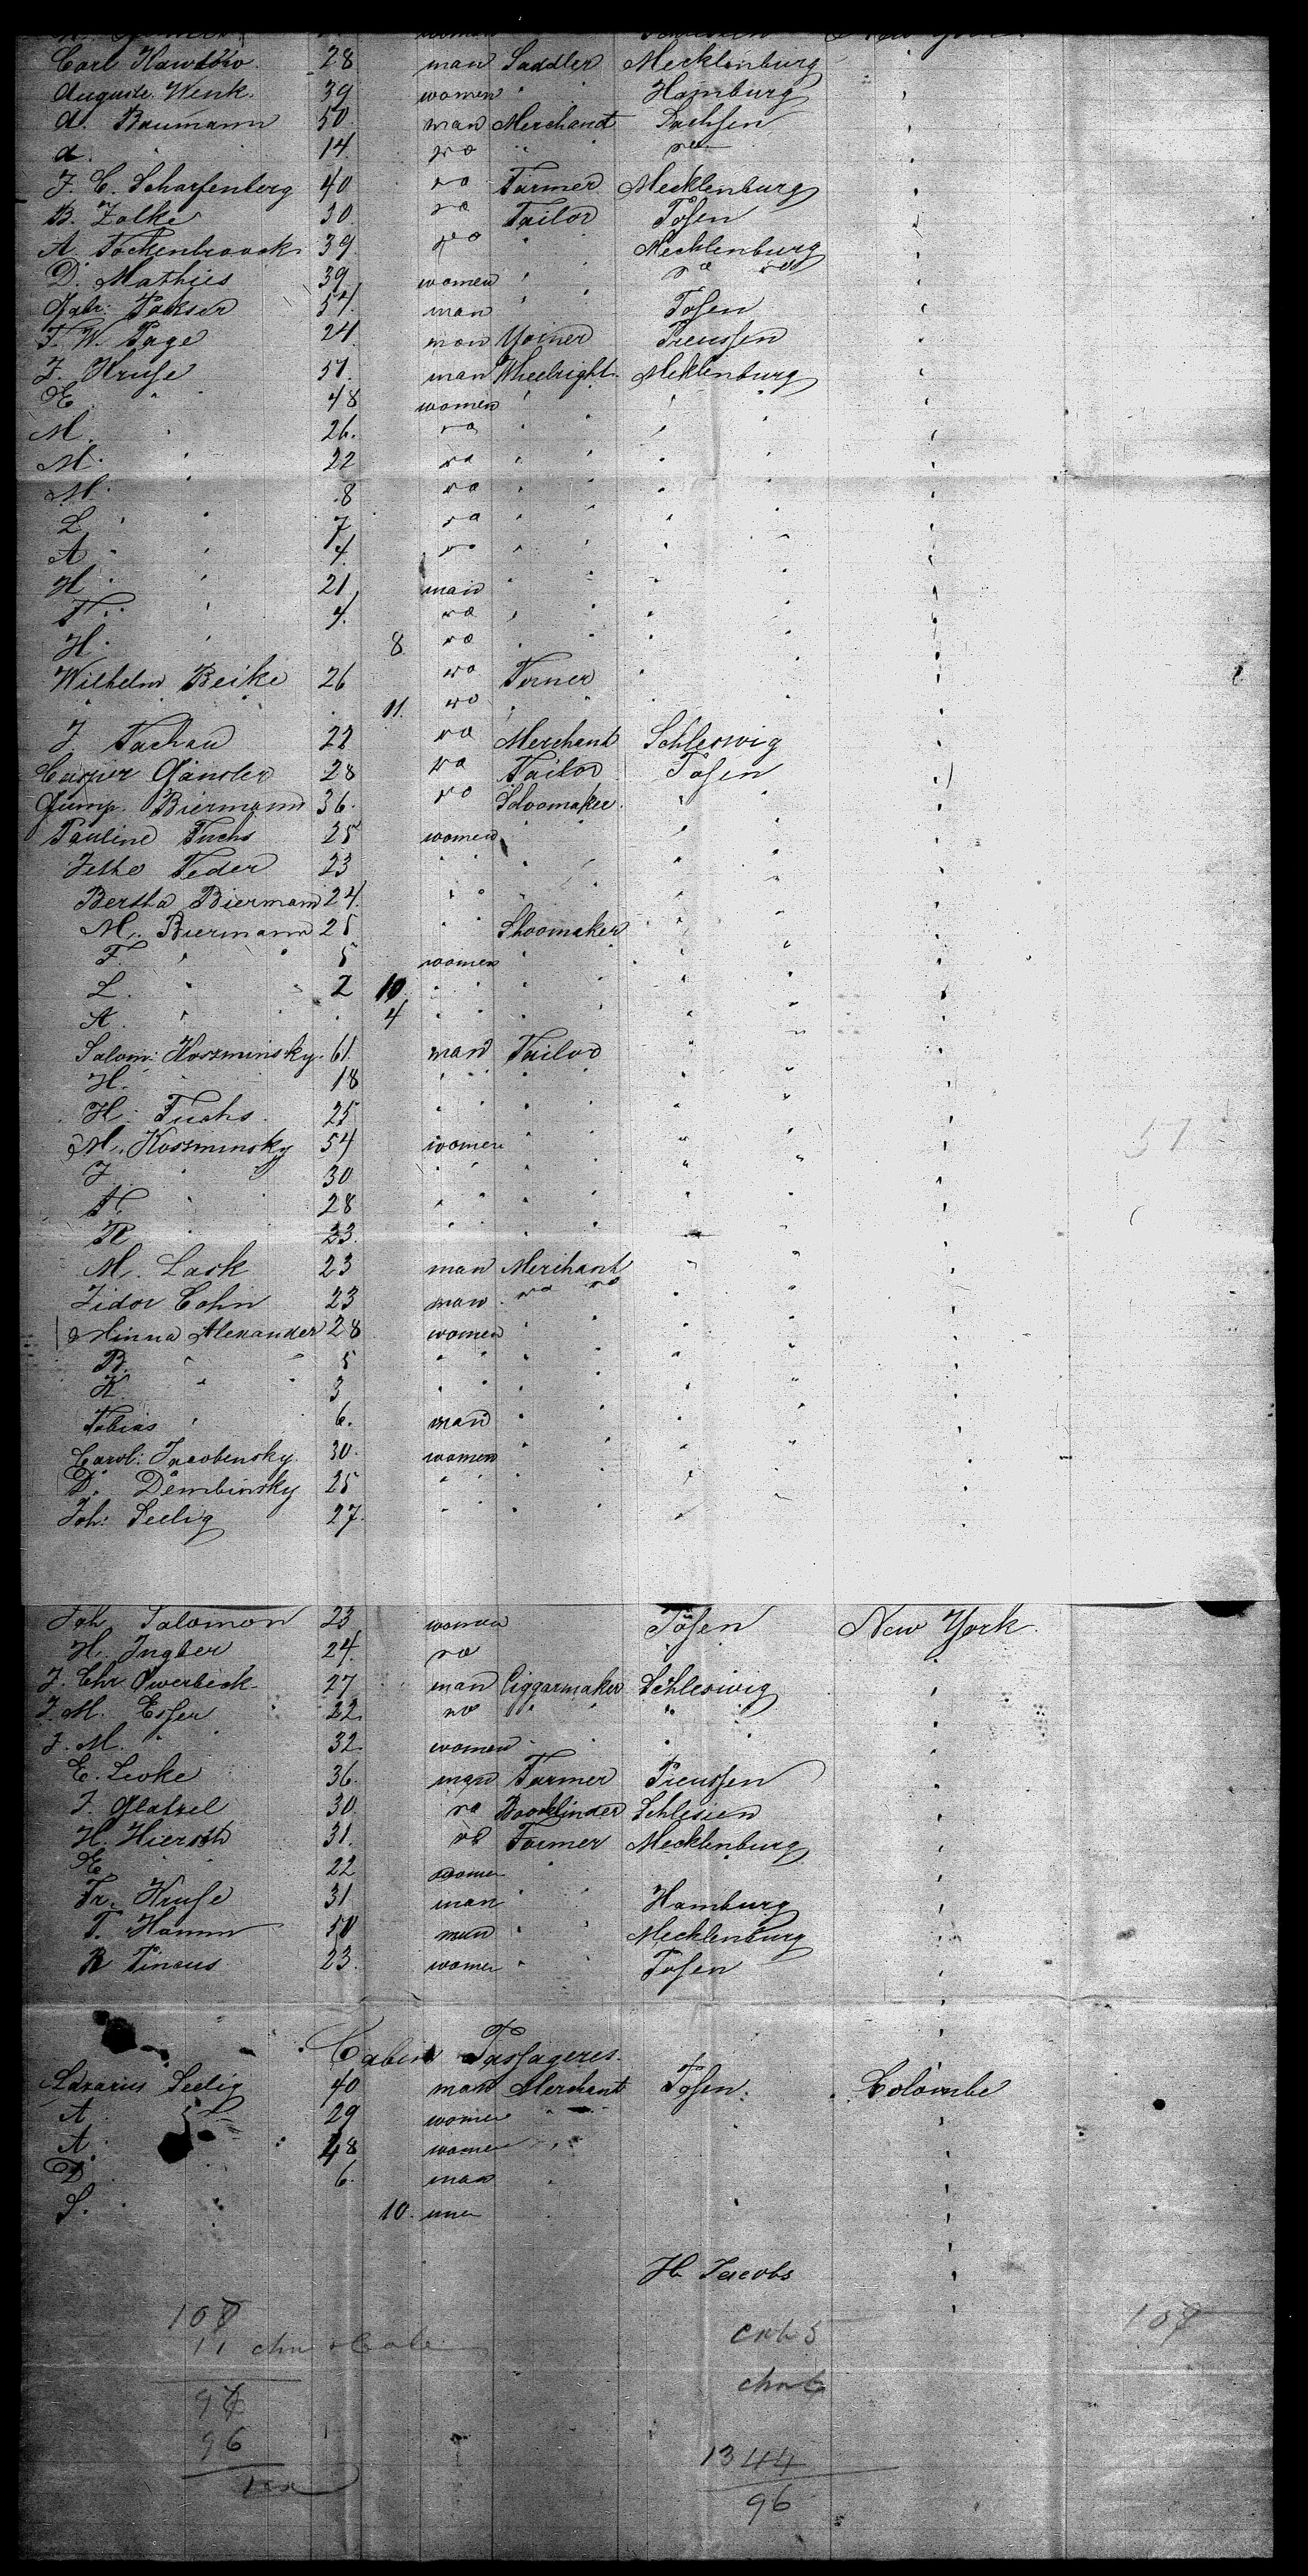 Carl 28 man Saddler Mecklenburg
Auguste Wenk 39 women " Hamburg
A. Baumann 50 man Merchandt Sachsen
A. " 14
J. C. Scharfenberg 40 Farmer Mecklenburg
B. Zolke 30 Tailor Posen
A. 39 " Mecklenburg
D. Mathies 39 women "
57 man " Posen
F. W. Page 24 man Yoiner Preussen
J. Kruse 57 man Wheelright Meklenburg
E. " 48 women " "
M. " 26. " "
M. " 22 " "
M. " 8 " "
L. " 7 " "
A. " 4 " "
H. " 21 man " "
F. " 4. " "
H. " 8 " "
Wilhelm Beike 26 Torner "
" " 11. " "
J. Tachau 22 Merchant Schleswig
Casper Gänsler 28 Tailor Posen
Gump. Biermann 36. Shoomaker "
Pauline Fuchs 25 women "
Jethe Feder 23 " " "
Bertha Biermann 24 " "
M. Biermann 25 " Shoomaker "
F. " 5 women " "
L. " 2 10 " " "
A. " 4 " " "
Salom: Koszminsky. 61. man Tailor "
H. " 18 " " "
H. Fuchs. 25 " " "
M. Koszminsky 54 women " "
J. " 30 " " "
28 " " "
R. " 23. " " "
M. Lask 23 man Merchant "
Zidor Cohn 23 man "
Minna Alexander 28 women " "
B. " 5 " " "
K. " 3 " " "
Tobias " 6. man " "
Carol: Jacobinsky. 30. women " "
D. Dembinsky 25 " " "
Joh: Seelig 27. " " "
Joh. Salomon 23 women Posen New York.
H. Ingber 24. "
J. Chr. Owerbeck 27 man Ciggarmaker Schleswig "
J. M. Esser 22. " " "
J. M. " 32. women " " "
E. Levke 36. man Farmer Preussen "
J. Glatzel 30. Boocklinder Schlesien "
H. Hieroth 31. Farmer Mecklenburg "
E. " 22 women " "
Fr. Kruse 31 man " Hamburg "
T. Hamm 50 man " Mecklenburg "
R. Pincus 23. women " Posen "
Cabin Passageres.
Lazarus Seelig 40 man Merchant Posen. Colombe
A. " 29 women " "
A. " 48 women " "
D. 6. man " "
S. " 10. " "
H. Jacobs
107 107
11
96
1344
96